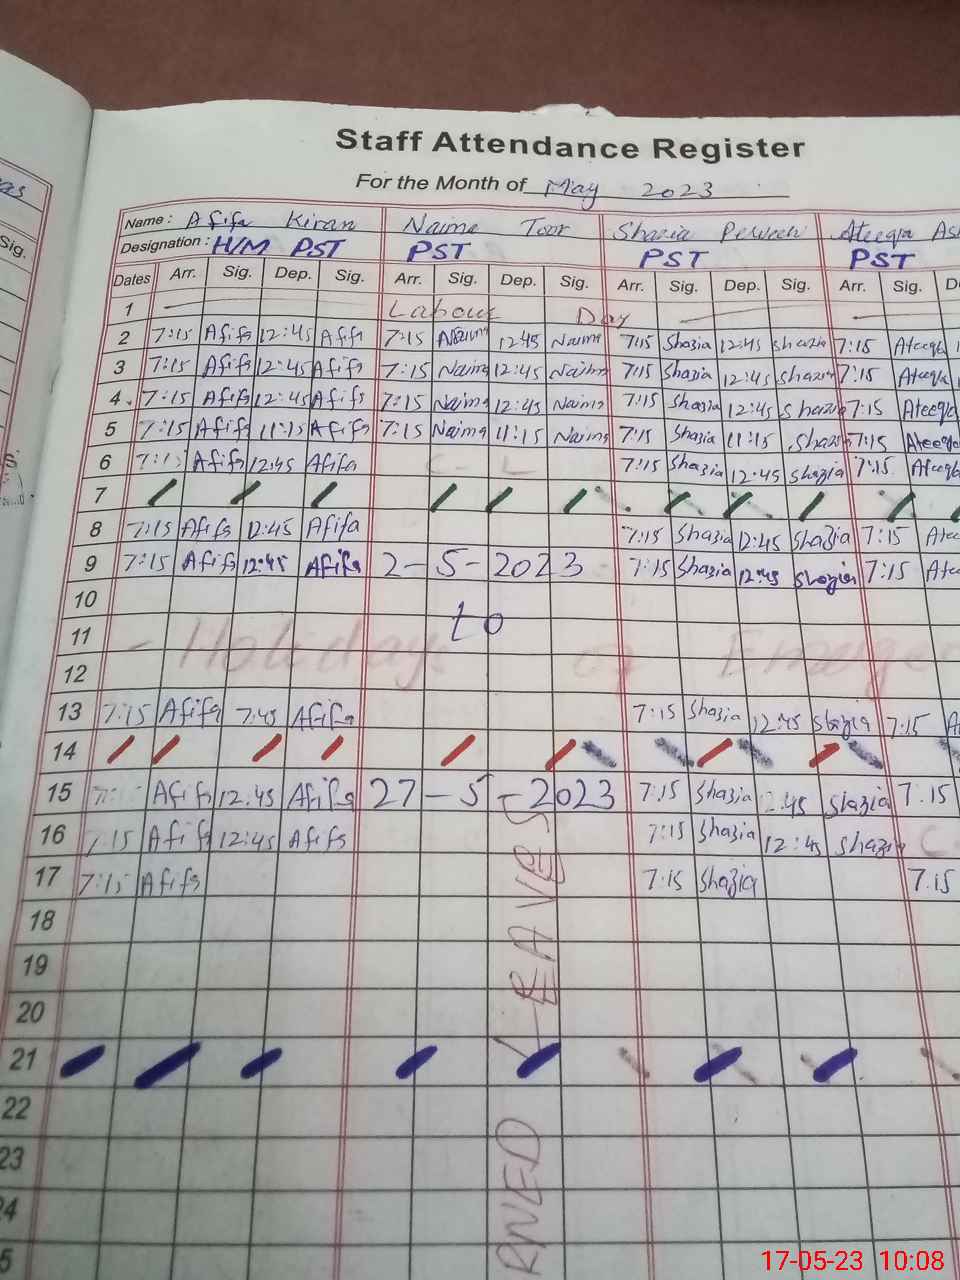 Staff Attendance Register
For the Month of May 2023
Name: Afifa Kiran Naima Toor Shazia Perveen Ateeqa
Designation: H/M PST PST PST PST
Sig. Dates Arr. Sig. Dep. Sig. Arr. Sig. Dep. Sig. Arr. Sig. Dep. Sig. Arr. Sig.
1 Labour Day
2 7:15 Afifa 12:45 Afifa 7:15 Naima 12:45 Naima 7:15 Shazia 12:45 Shazia 7:15 Ateeqa
3 7:15 Afifa 12:45 Afifa 7:15 Naima 12:45 Naima 7:15 Shazia 12:45 Shazia 7:15 Ateeqa
4 7:15 Afifa 12:45 Afifa 7:15 Naima 12:45 Naima 7:15 Shazia 12:45 Shazia 7:15 Ateeqa
5 7:15 Afifa 11:15 Afifa 7:15 Naima 11:15 Naima 7:15 Shazia 11:15 Shazia 7:15 Ateeqa
6 7:15 Afifa 12:45 Afifa C - L 7:15 Shazia 12:45 Shazia 7:15 Ateeqa
7
8 7:15 Afifa 12:45 Afifa 7:15 Shazia 12:45 Shazia 7:15
9 7:15 Afifa 12:45 Afifa 2-5-2023 7:15 Shazia 12:45 Shazia 7:15
10 to
11 - Holidays of
12
13 7:15 Afifa 7:45 Afifa 7:15 Shazia 12:45 Shazia 7:15
14
15 Afifa 12:45 Afifa 27-5-2023 7:15 Shazia 12:45 Shazia 7.15
16 7:15 Afifa 12:45 Afifa 7:15 Shazia 12:45 Shazia C
17 7:15 Afifa 7:15 Shazia 7.15
18
19
20
21
22
23
24
RNED LEAVES
17-05-23 10:08